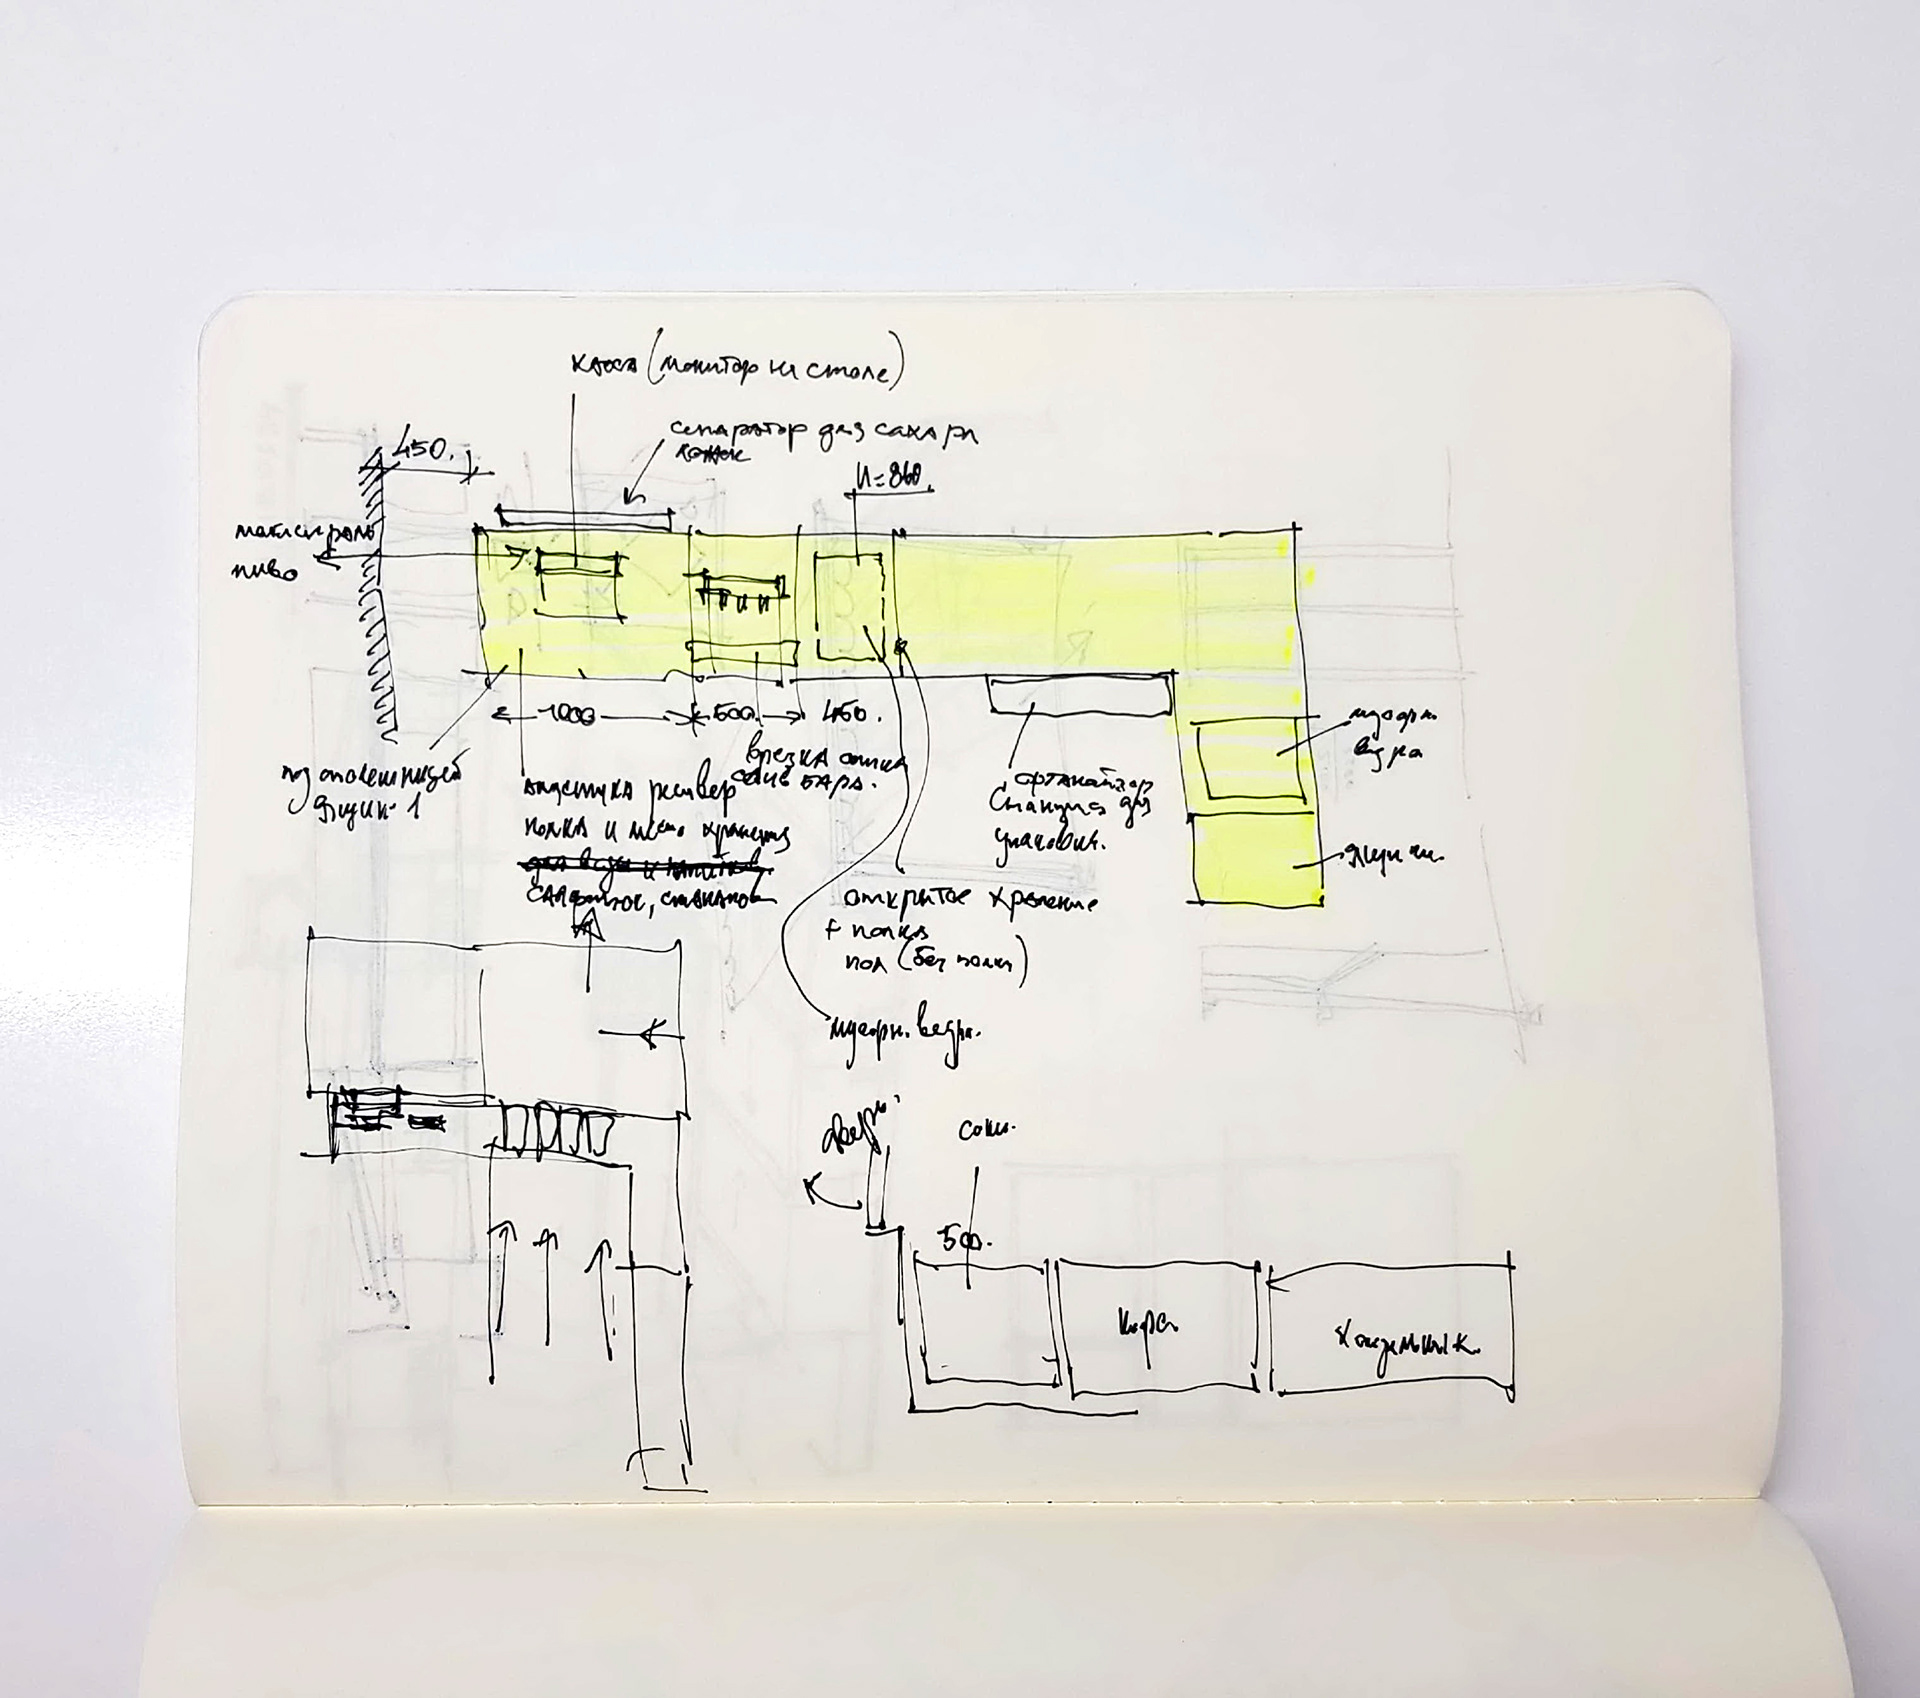 касса (монитор на столе)
сепаратор для сахара
ложек
450.
h=860.
магистраль
пиво
1000
500
450.
под столешницей
ящик 1
врезка
слив бара.
акустика ресивер
полка и место хранения
салфеток, стаканов
органайзер
для
упаковки.
мусорн.
ведра
ящики.
открытое хранение
+ полка
пол (без полки)
мусорн. ведра.
дверь
соки.
500.
кора
холодильник.